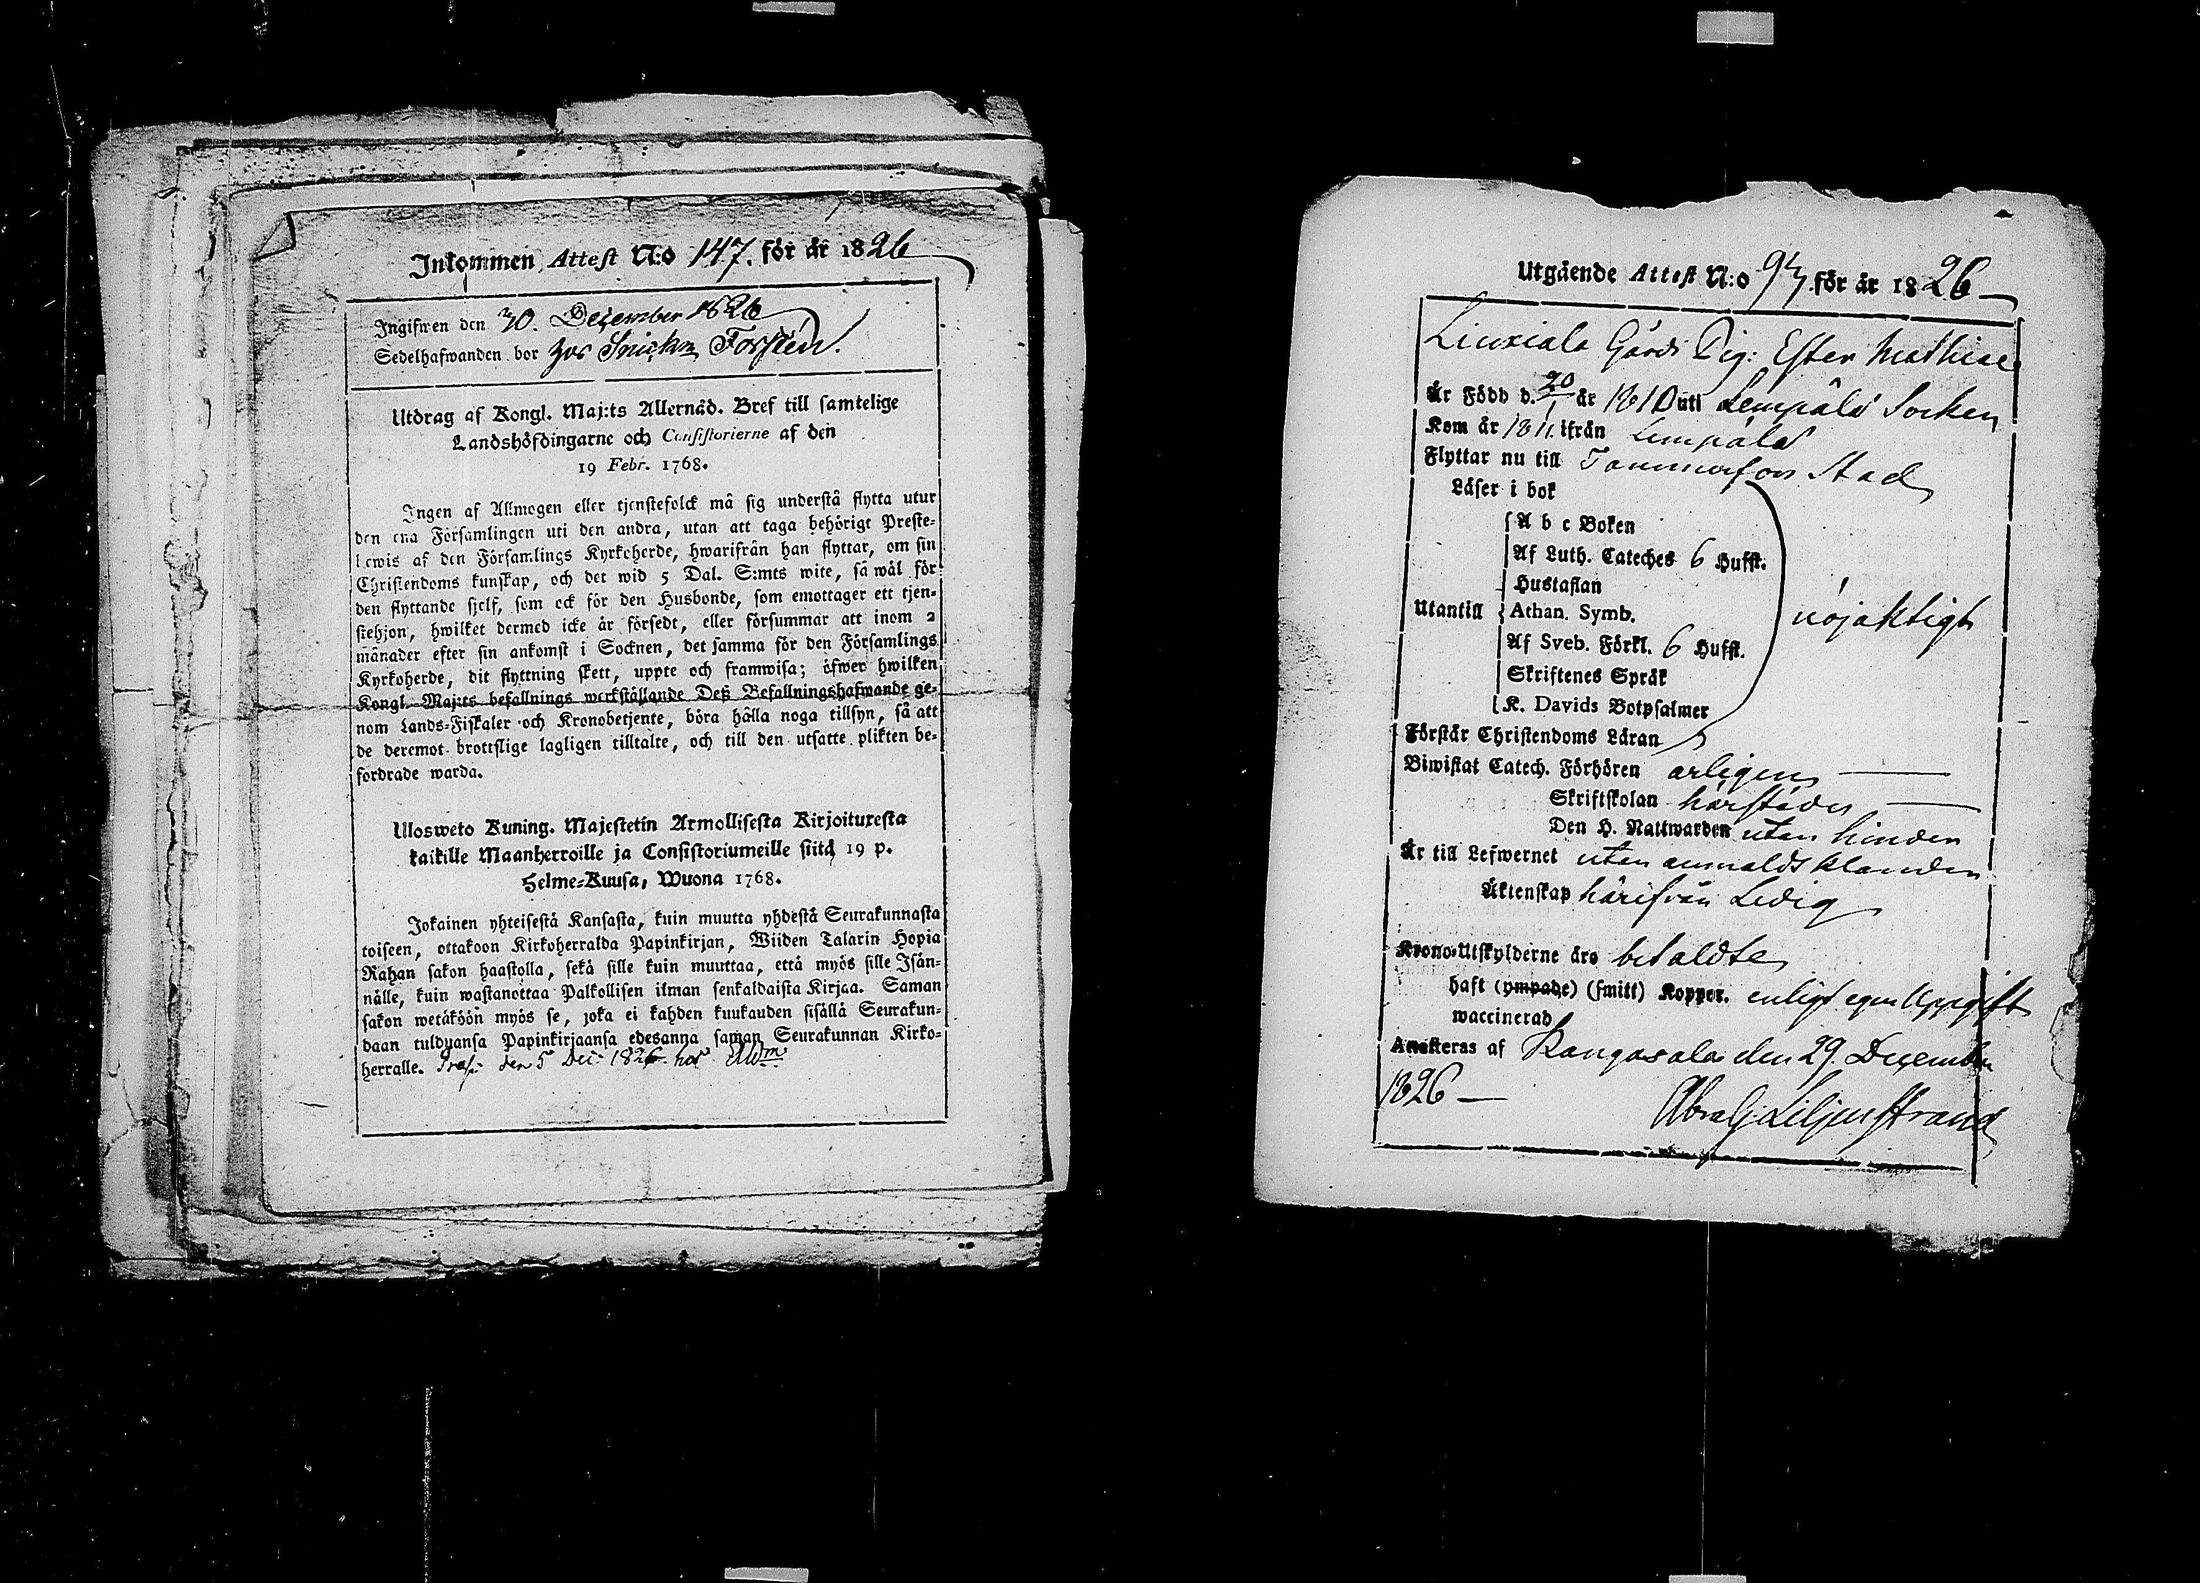 Inkommen Attest N:o 147. för år 1826
Ingifwen den 30. December 1826
Sedelhafwanden bor hos Snickn Forstén.
Utdrag af Kongl. Maj:ts Allernåd. Bref till samtelige
Landshöfdingarne och Consistorierne af den
19 Febr. 1768.
Ingen af Allmogen eller tjenstefolck må sig understå flytta utur
den ena Församlingen uti den andra, utan att taga behörigt Preste-
bewis af den Församlings Kyrkoherde, hwarifrån han flyttar, om sin
Christendoms kunskap, och det wid 5 Dal. S:mts wite, så wäl för
den flyttande sjelf, som ock för den Husbonde, som emottager ett tjen-
stehjon, hwilket dermed icke är försedt, eller försummar att inom 2
månader efter sin ankomst i Socknen, det samma för den Församlings
Kyrkoherde, dit flyttning skett, uppte och framwisa; öfwer hwilken
Kongl. Maj:ts befallnings werkställande Deß Befallningshafwande ge-
nom Lands-Fiskaler och Kronobetjente, böra hålla noga tillsyn, så att
de deremot brottslige lagligen tilltalte, och till den utsatte plikten be-
fordrade warda.
Ulosweto Kuning. Majestetin Armollisesta Kirjoituxesta
kaikille Maanherroille ja Consistoriumeille siitä 19 p.
Helme-Kuusa, Wuona 1768.
Jokainen yhteisestä Kansasta, kuin muutta yhdestä Seurakunnasta
toiseen, ottakoon Kirkoherralda Papinkirjan, Wiiden Talarin Hopia
Rahan sakon haastolla, sekä sille kuin muuttaa, että myös sille Isän-
nälle, kuin wastanottaa Palkollisen ilman senkaldaista Kirjaa. Saman
sakon wetäköön myös se, joka ei kahden kuukauden sisällä Seurakun-
daan tulduansa Papinkirjaansa edesanna saman Seurakunnan Kirko-
herralle. den 5 Dec. 1826 hos
Utgående Attest N:o 93 för år 1826
Liuxiala Gårds Pig: Ester Mathiae
Är Född d. 20/1 år 1810 uti Lempälä Socken
Kom år 1811. ifrån Lempälä
Flyttar nu till Tammerfors Stad
Läser i bok
A b c Boken
Af Luth. Cateches 6 Hufst.
Hustaflan
Utantill Athan. Symb. nöjaktigt
Af Sveb. Förkl. 6 Hufst.
Skriftenes Språk
K. Davids Botpsalmer
Förstår Christendoms Läran
Biwistat Catech. Förhören årligen
Skriftskolan härstädes
Den H. Nattwarden utan hinder
Är till Lefwernet utan anmäldt klander
Äktenskap härifrån Ledig
Krono-Utskylderne äro betaldte
haft (ympade) (smitt) Koppor. enligt egen Uppgift
waccinerad
Attesteras af Kangasala den 29. December
1826
Abra G Liljenstrand